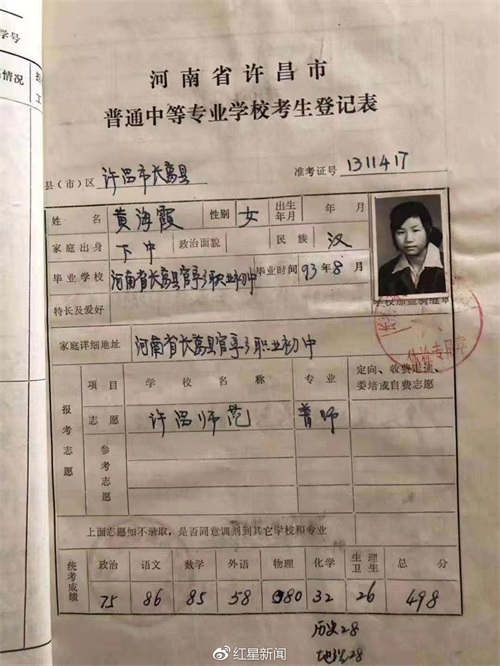 学号
情况
河南省许昌市
普通中等专业学校考生登记表
县（市）区 许昌市长葛县 准考证号 1311417
姓名 黄海霞 性别 女 出生年月 年 月
家庭出身 下中 政治面貌 民族 汉
毕业学校 河南省长葛县官亭乡职业初中 毕业时间 93年8月
特长及爱好
家庭详细地址 河南省长葛县官亭乡职业初中
报考志愿 项目 学校名称 专业 定向、收费走读、委培或自费志愿
志愿 许昌师范 普师
参考志愿
上面志愿如不录取，是否同意调剂到其它学校和专业
统考成绩 政治 语文 数学 外语 物理 化学 生理卫生 总分
75 86 85 58 80 32 26 498
历史28
地理28
红星新闻